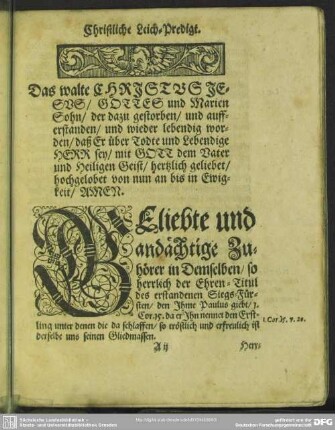 Christliche Leich-Predigt.
Das walte CHRISTVS JE-
SVS/ GOTTES und Marien
Sohn/ der dazu gestorben/ und auff-
erstanden/ und wieder lebendig wor-
den/ daß Er über Todte und Lebendige
HERR sey/ mit GOTT dem Vater
und Heiligen Geist/ hertzlich geliebet/
hochgelobet von nun an bis in Ewig-
keit/ AMEN.
GEliebte und
andächtige Zu-
hörer in Demselben/ so
herrlich der Ehren-Titul
des erstandenen Siegs-Für-
sten/ den Ihme Paulus giebt/ 1.
Cor. 15. da er Ihn nennet den Erst-
ling unter denen die da schlaffen/ so tröstlich und erfreulich ist
derselbe uns seinen Gliedmassen.
1. Cor. 15. v. 20.
A ij
Her-